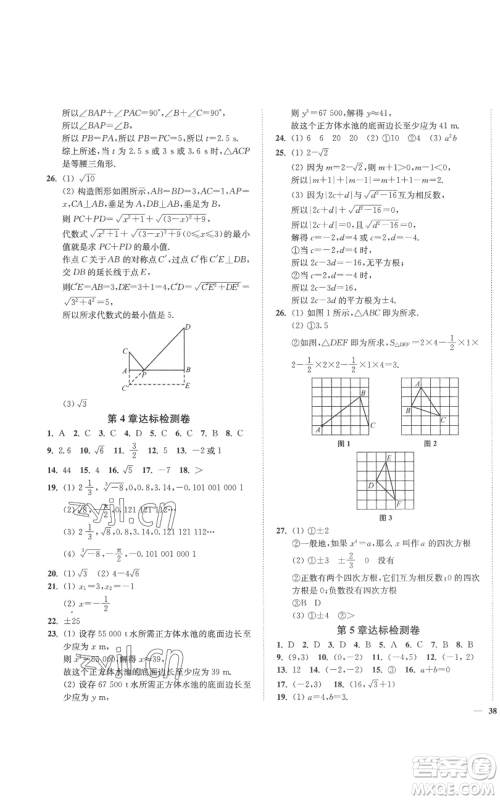 所以∠BAP+∠PAC=90°,即∠BAC=90°,
所以∠BAP=∠B,
所以 PB=PA,所以 PB=PC=2.5,所以 t=2.5 s.
综上所述,当 t 为 2.5 s 或 3 s 或 3.6 s 时,△ACP
是等腰三角形.
26. (1) √10
(2) 构造图形如图所示,
PC=√(x²+1),PD=√((3-x)²+9),
PC+PD=√(x²+1)+√((3-x)²+9),
代数式√(x²+1)+√((3-x)²+9)(0≤x≤3)的最小
值就是求 PC+PD 的最小值.
作点 C 关于 AB 的对称点 C′,过 C′作 C′E⊥DB,
交 DB 的延长线于点 E.
则C′E=AB=3,DE=3+1=4,C′D=√(C′E²+DE²)=
√(3²+4²)=5,
所以所求代数式的最小值是 5.
D
C
A P B
C′ E
(3) √5
第 4 章达标检测卷
1. A 2. C 3. C 4. B 5. C 6. C 7. B 8. C
9. 2.6 10. √6 11. > 12. 5 13. -2或1
14. 44 15. 4 16. 7 17. -8 18. >
19. (1) 2 1/3,∛-8,0,0.3,3.14,-0.101 001 000 1
(2) √8,-π/2,0.121 121 112…
(3) 2 1/3,√8,0.3,3.14,0.121 121 112…
(4) ∛-8,-π/2,-0.101 001 000 1
20. (1) √3 (2) 4-4√6
21. (1) x₁=3,x₂=
(2) x=-1/2
22. ±25
23. (1) 设存 55 000 t 水所需正方体水池的底面边长至
少应为 x m,
则 x³=55 000,解得 x≈39,
故这个正方体水池的底面边长至少应为 39 m.
(2) 设存 67 500 t 水所需正方体水池的底面边长至
少应为 y m,
则 y³=67 500,解得 y≈41,
故这个正方体水池的底面边长至少应为 41 m.
24. (1) 6 6 20 20 (2) ①10 ②4 (3) a²b
25. (1) 2-√2
(2) 因为 m=2-√2,所以 m+1>0,m-1<0,
所以|m+1|+|m-1|=m+1+1-m=2.
(3) 因为|2c+d|与√(d²-16)互为相反数,
所以|2c+d|+√(d²-16)=0,
所以|2c+d|=0,且√(d²-16)=0,
解得 c=-2,d=4或c=2,d=-4.
①当 c=-2,d=4时,
所以 2c-3d=-16,无平方根.
②当 c=2,d=-4时,
所以 2c-3d=16,
所以 2c-3d 的平方根为±4.
26. (1) 如图 1 所示,△ABC 即为所求.
(2) ①3.5
②如图,△DEF 即为所求. S△DEF=2×4-1/2×2×
1-1/2×2×2-1/2×4×1=3.
A
图 1
图 2
E
D
F
图 3
27. (1) ①±2
②一般地,如果 x⁴=a,那么 x 叫做 a 的四次方根
(2) ①±3 ±2/3 0 没有
②正数有两个四次方根,它们互为相反数;0的四次
方根是0;负数没有四次方根
(3) ①±√2 ②>
第 5 章达标检测卷
1. D 2. D 3. C 4. A 5. B 6. B 7. C
8. B 9. (9,3) 10. (-4,5) 11. (-4,5) 12. (-1,2)
13. 12 14. (-2,3) 15. (-1,2) 16. 4
17. (-2,3) 18. (16,√3+1)
19. (1) a=4,b=3.
— 38
zyjl.cn
zyjl.cn